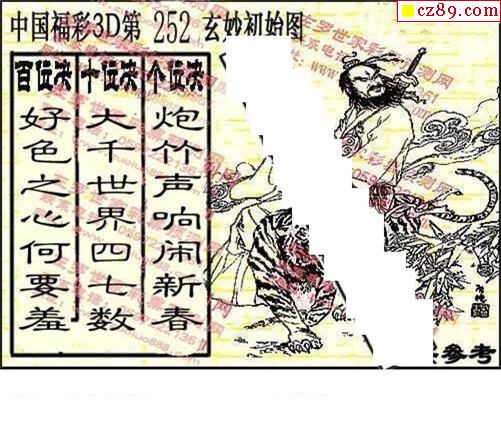 cz89.com
中国福彩3D第 252 玄妙初始图
百位诀 十位诀 个位诀
好色之心何要羞
大千世界四七数
炮竹声响闹新春
参考